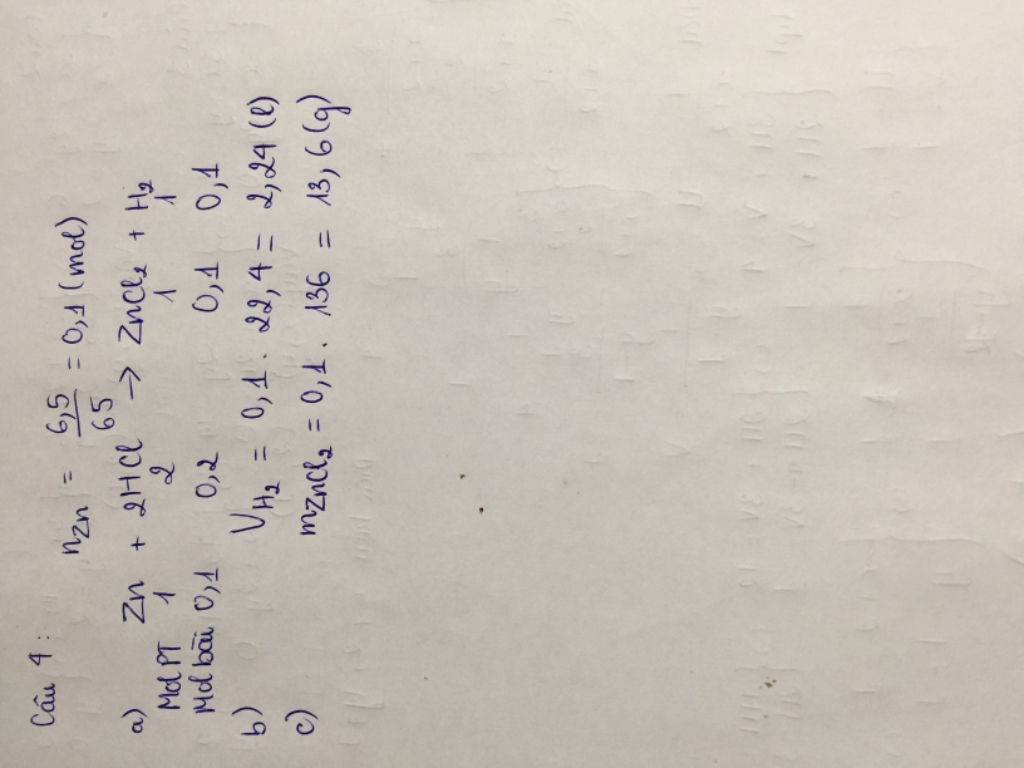 Câu 4:
nZn = 6,5/65 = 0,1 (mol)
a) Zn + 2HCl → ZnCl₂ + H₂
Mol PT 1 2 1 1
Mol bài 0,1 0,2 0,1 0,1
b) V_H₂ = 0,1 . 22,4 = 2,24 (l)
c) mZnCl₂ = 0,1 . 136 = 13,6 (g)